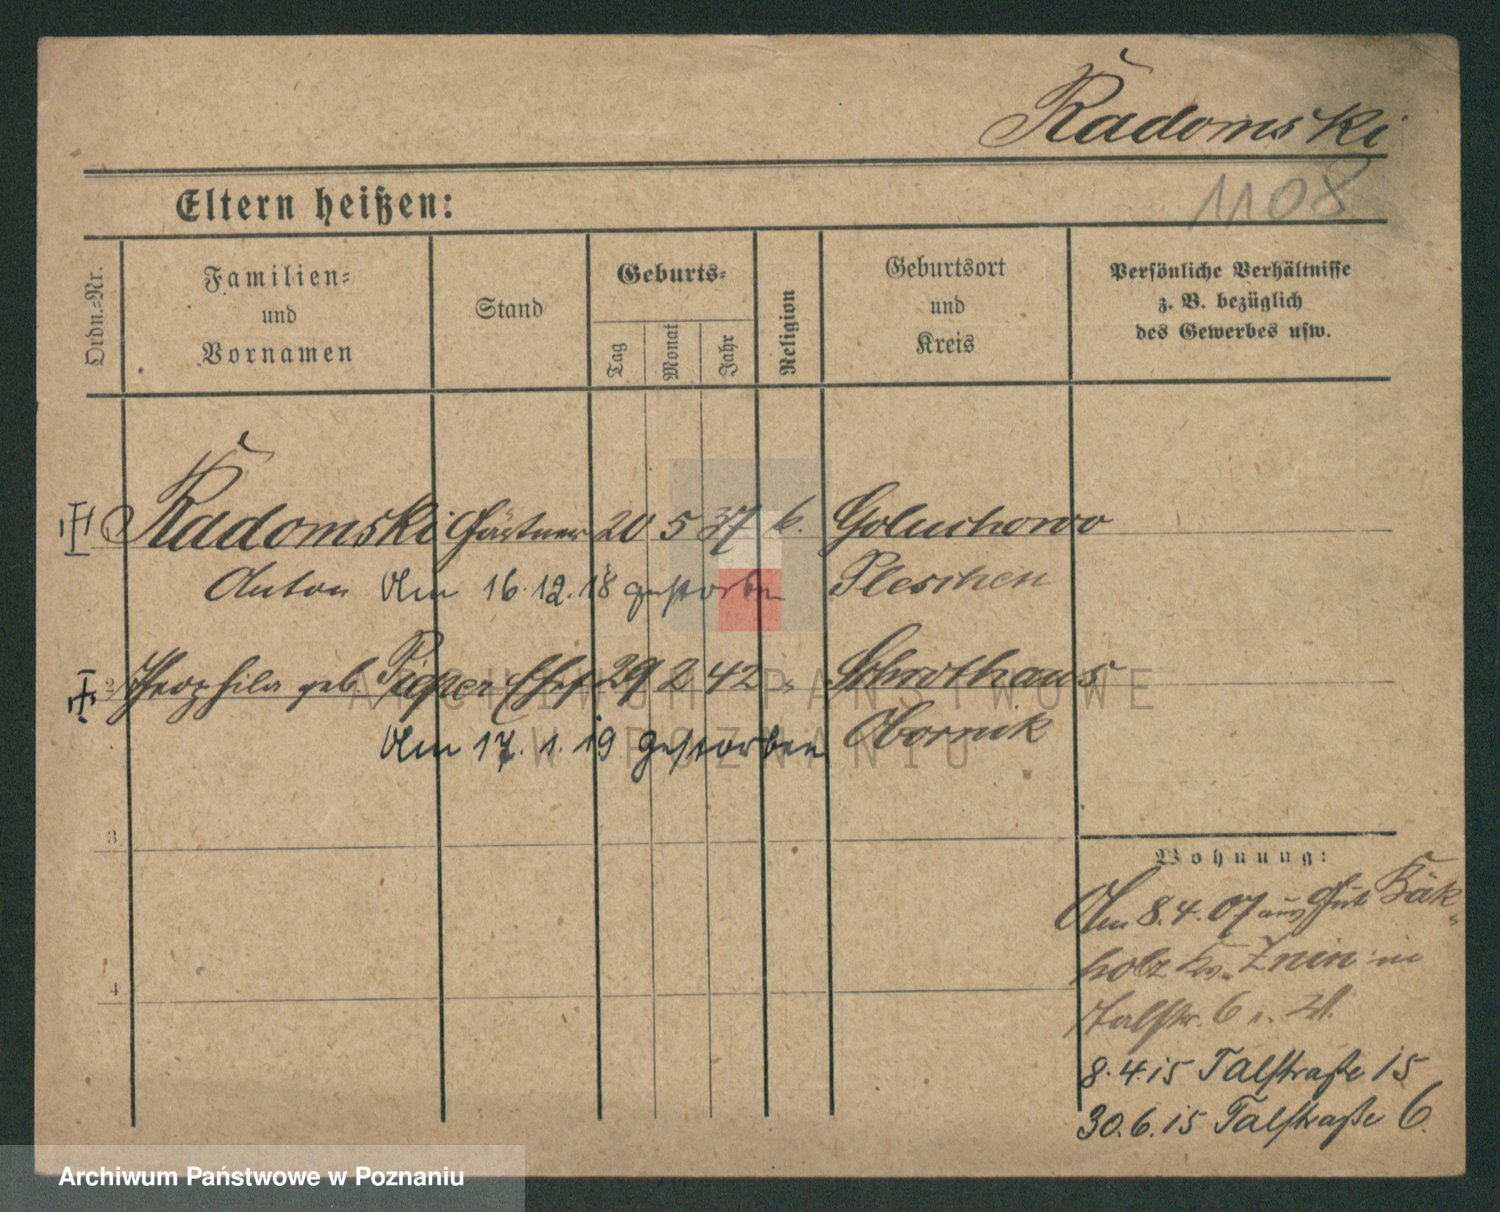 Radomski
1108
Eltern heißen:
Ordn.-Nr.
Familien-
und
Vornamen
Stand
Geburts-
Tag
Monat
Jahr
Religion
Geburtsort
und
Kreis
Persönliche Verhältnisse
z. B. bezüglich
des Gewerbes usw.
Radomski Gärtner 20 5 37 k. Goluchowo
Anton Am 16.12.18 gestorben Pleschen
2 Theophila geb. Pieper Ehef 29 2 42 " Schrothaus
Am 17.1.19 gestorben Obornik
3
4
Wohnung:
Am 8.4.07 aus Gut
holz Kr. Znin in
Talstr. 6
8.4.15 Talstraße 15
30.6.15 Talstraße 6.
ARCHIWUM PAŃSTWOWE
W POZNANIU
Archiwum Państwowe w Poznaniu